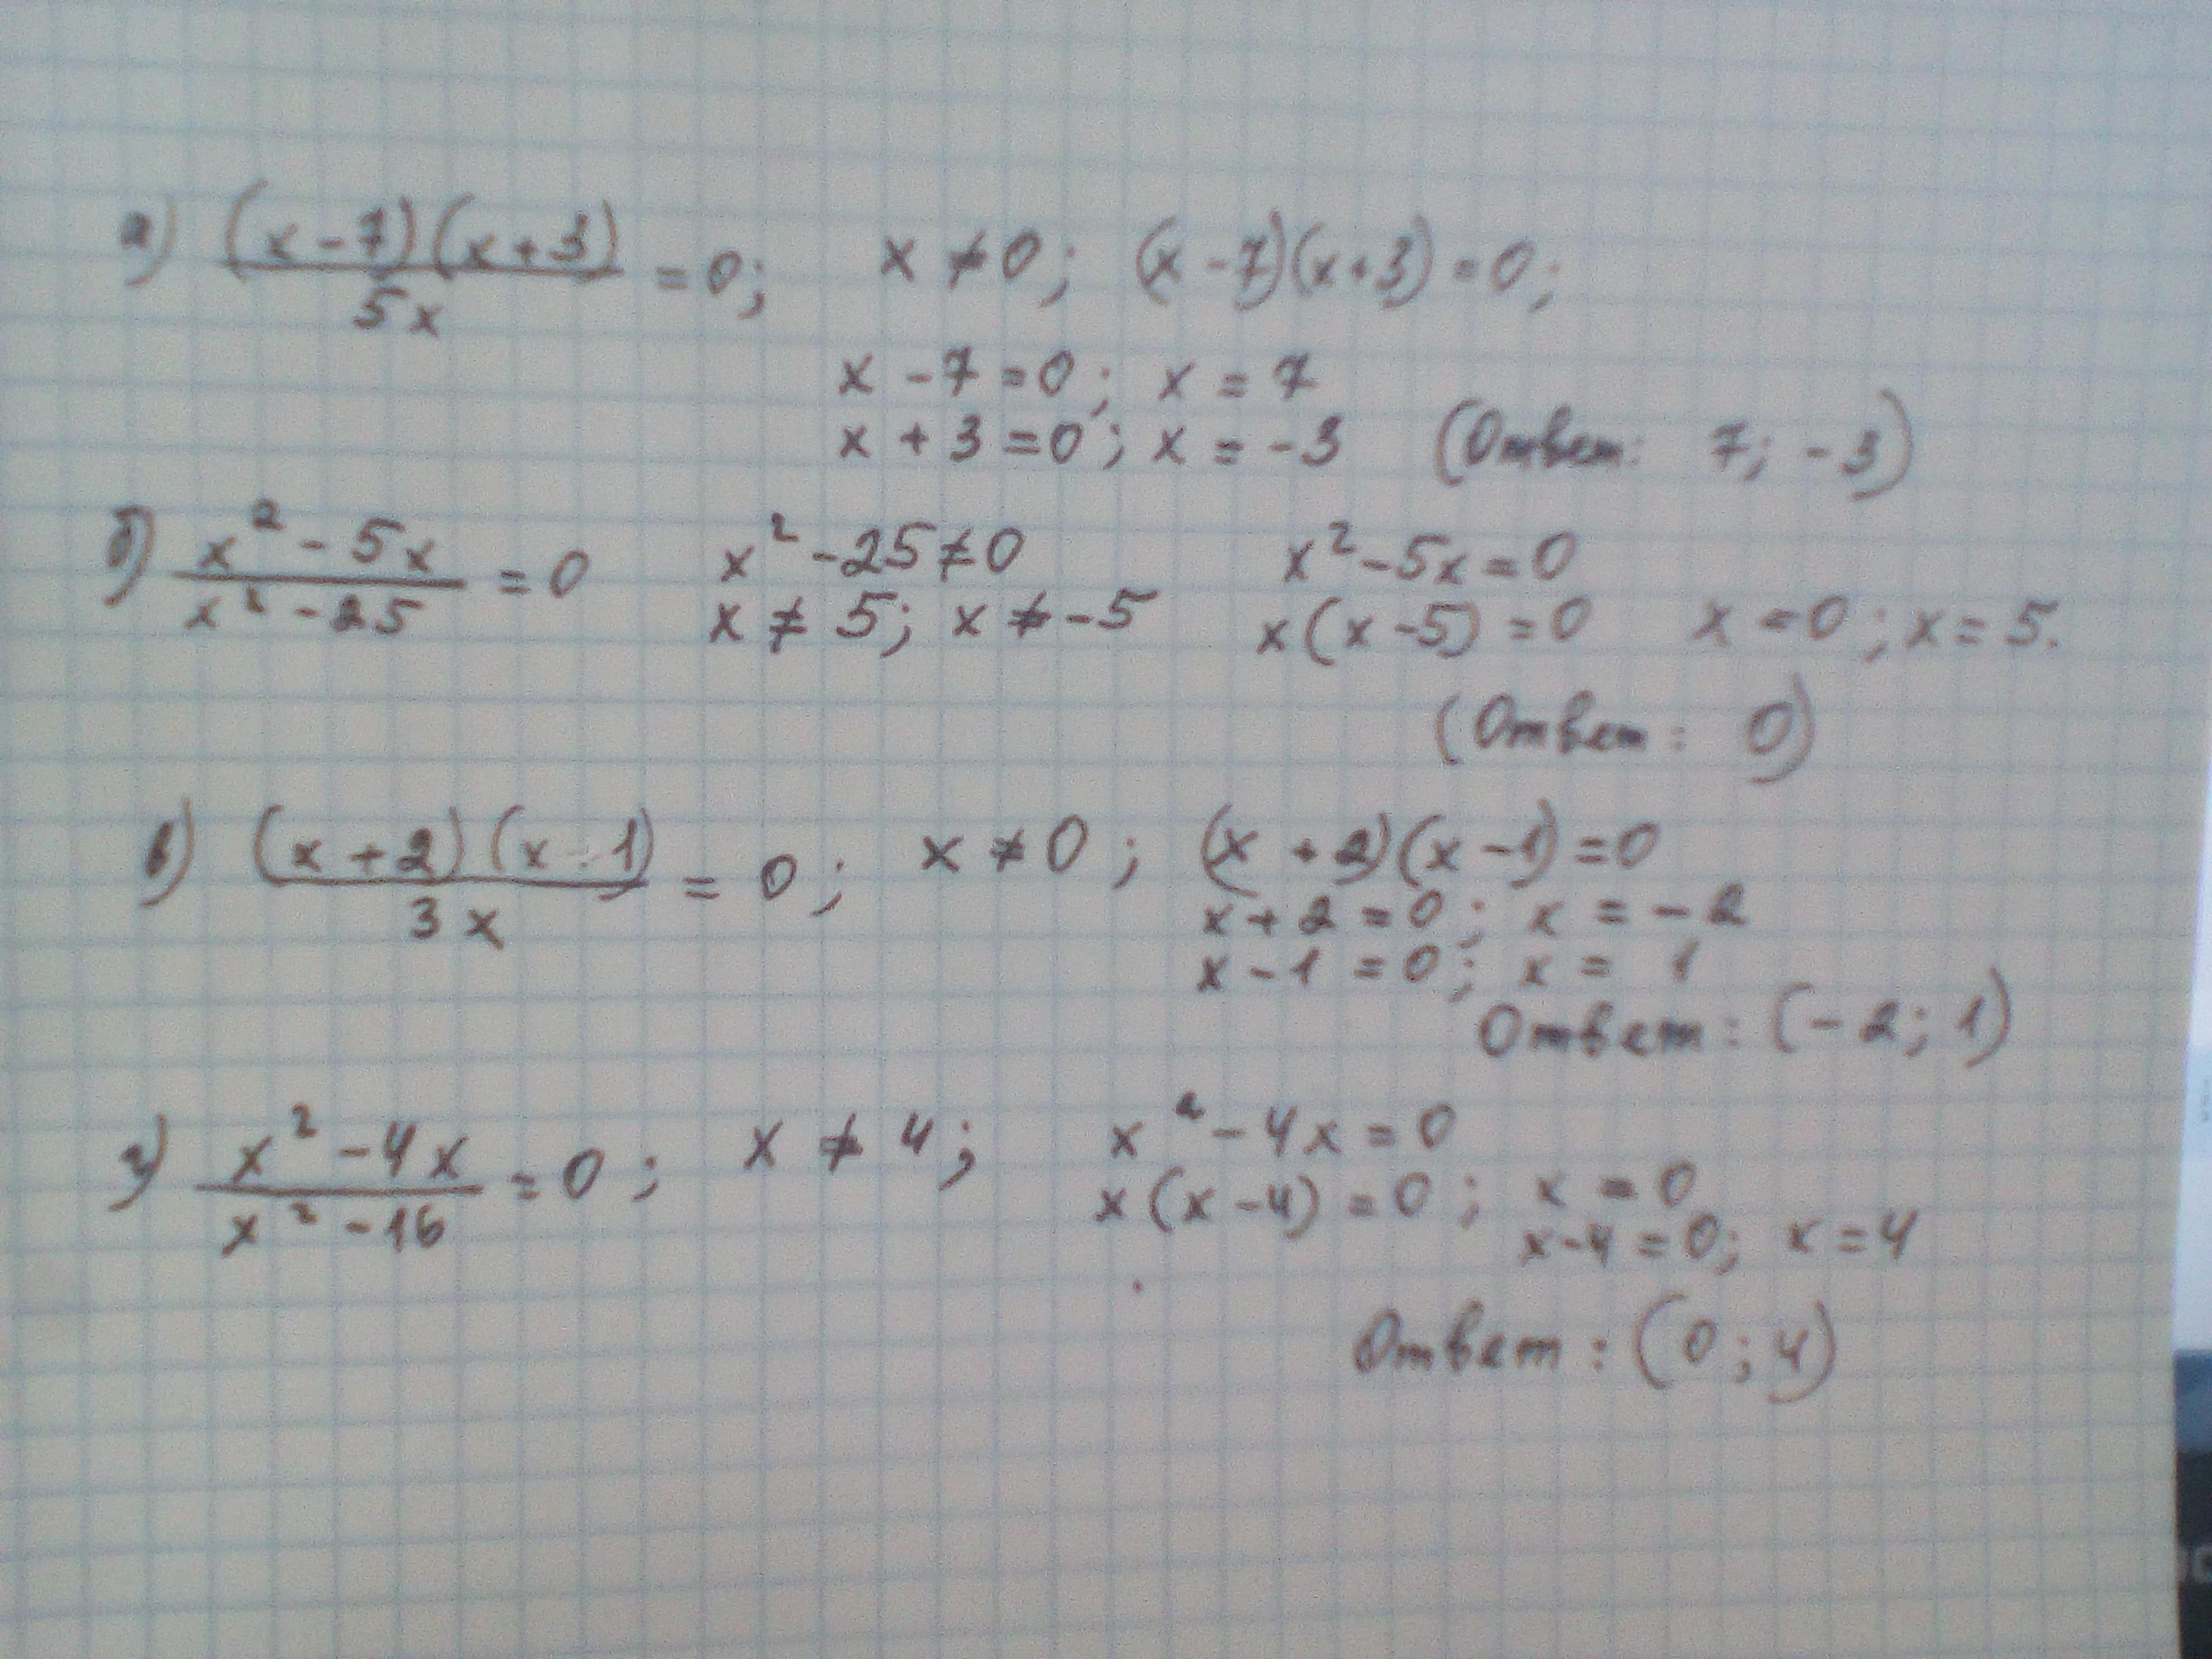 а) (x-7)(x+3)/5x =0; x ≠0; (x-7)(x+3)=0;
x-7=0; x=7
x+3=0; x=-3 (Ответ: 7; -3)
б) x²-5x/x²-25 =0 x²-25≠0 x²-5x=0
x≠5; x≠-5 x(x-5)=0 x=0; x=5.
(Ответ: 0)
в) (x+2)(x-1)/3x = 0; x≠0; (x+2)(x-1)=0
x+2=0; x=-2
x-1=0; x=1
Ответ: (-2; 1)
г) x²-4x/x²-16 =0; x≠4; x²-4x=0
x(x-4)=0; x=0
x-4=0; x=4
Ответ: (0; 4)